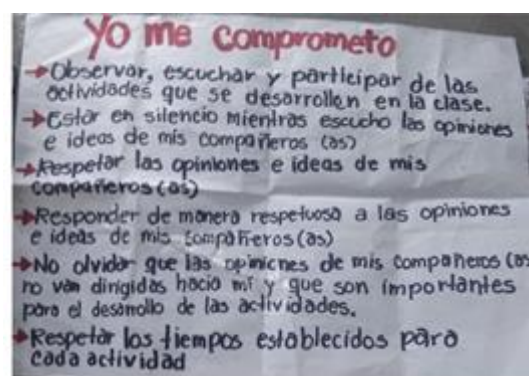 Yo me comprometo
→Observar, escuchar y participar de las
actividades que se desarrollen en la clase.
→Estar en silencio mientras escucho las opiniones
e ideas de mis compañeros (as)
→Respetar las opiniones e ideas de mis
compañeros (as)
→Responder de manera respetuosa a las opiniones
e ideas de mis compañeros (as)
→No olvidar que las opiniones de mis compañeros (as
no van dirigidas hacia mí y que son importantes
para el desarrollo de las actividades.
→Respetar los tiempos establecidos para
cada actividad